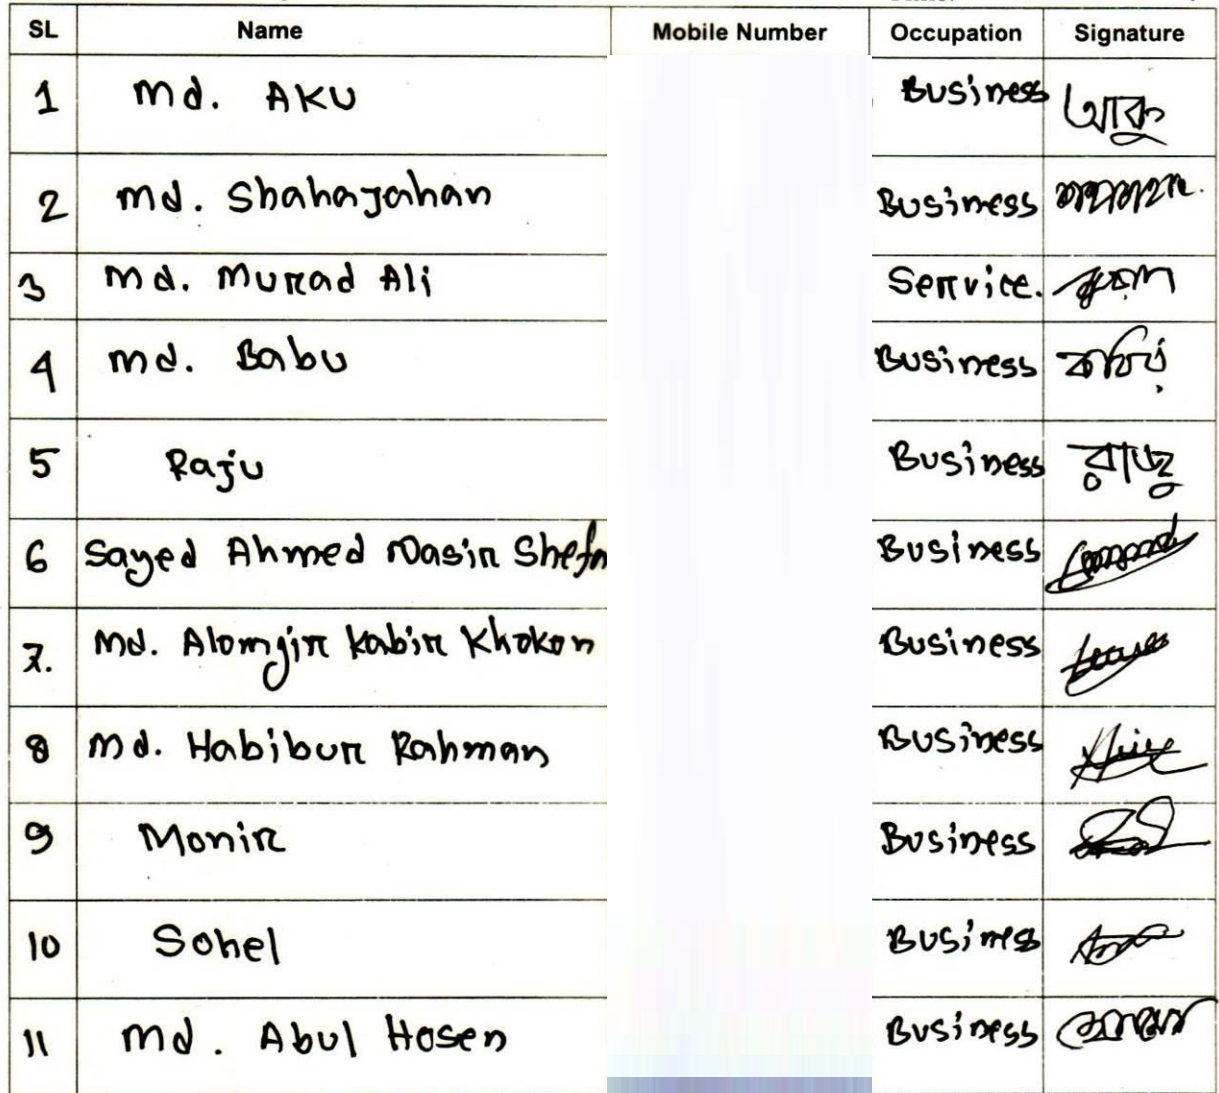 SL Name Mobile Number Occupation Signature
1 Md. AKU Business আকু
2 Md. Shahajahan Business
3 Md. Murad Ali Service.
4 Md. Babu Business
5 Raju Business রাজু
6 Sayed Ahmed Nasir Business
7. Md. Alomgir Kabir Khokon Business
8 Md. Habibur Rahman Business
9 Monir Business
10 Sohel Business
11 Md. Abul Hosen Business